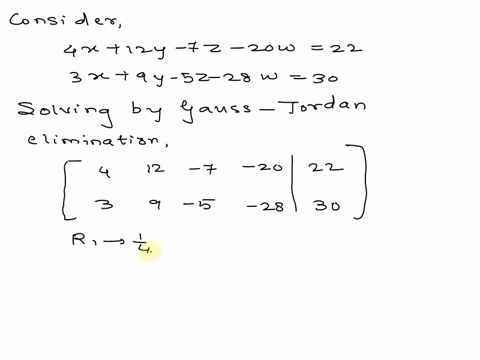 Consider,
4x+12y-7z-20w=22
3x+9y-5z-28w=30
Solving by Gauss-Jordan
elimination,
[ 4 12 -7 -20 | 22 ]
[ 3 9 -5 -28 | 30 ]
R₁→1/4